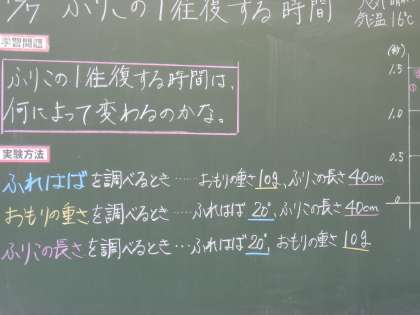 12/7 ふりこの1往復する時間
気温 16℃
学習問題
ふりこの1往復する時間は、
何によって変わるのかな。
実験方法
ふれはばを調べるとき……おもりの重さ10g、ふりこの長さ40cm
おもりの重さを調べるとき…ふれはば20°、ふりこの長さ40cm
ふりこの長さを調べるとき…ふれはば20°、おもりの重さ10g
(秒)
1.5
1.0
0.5
0